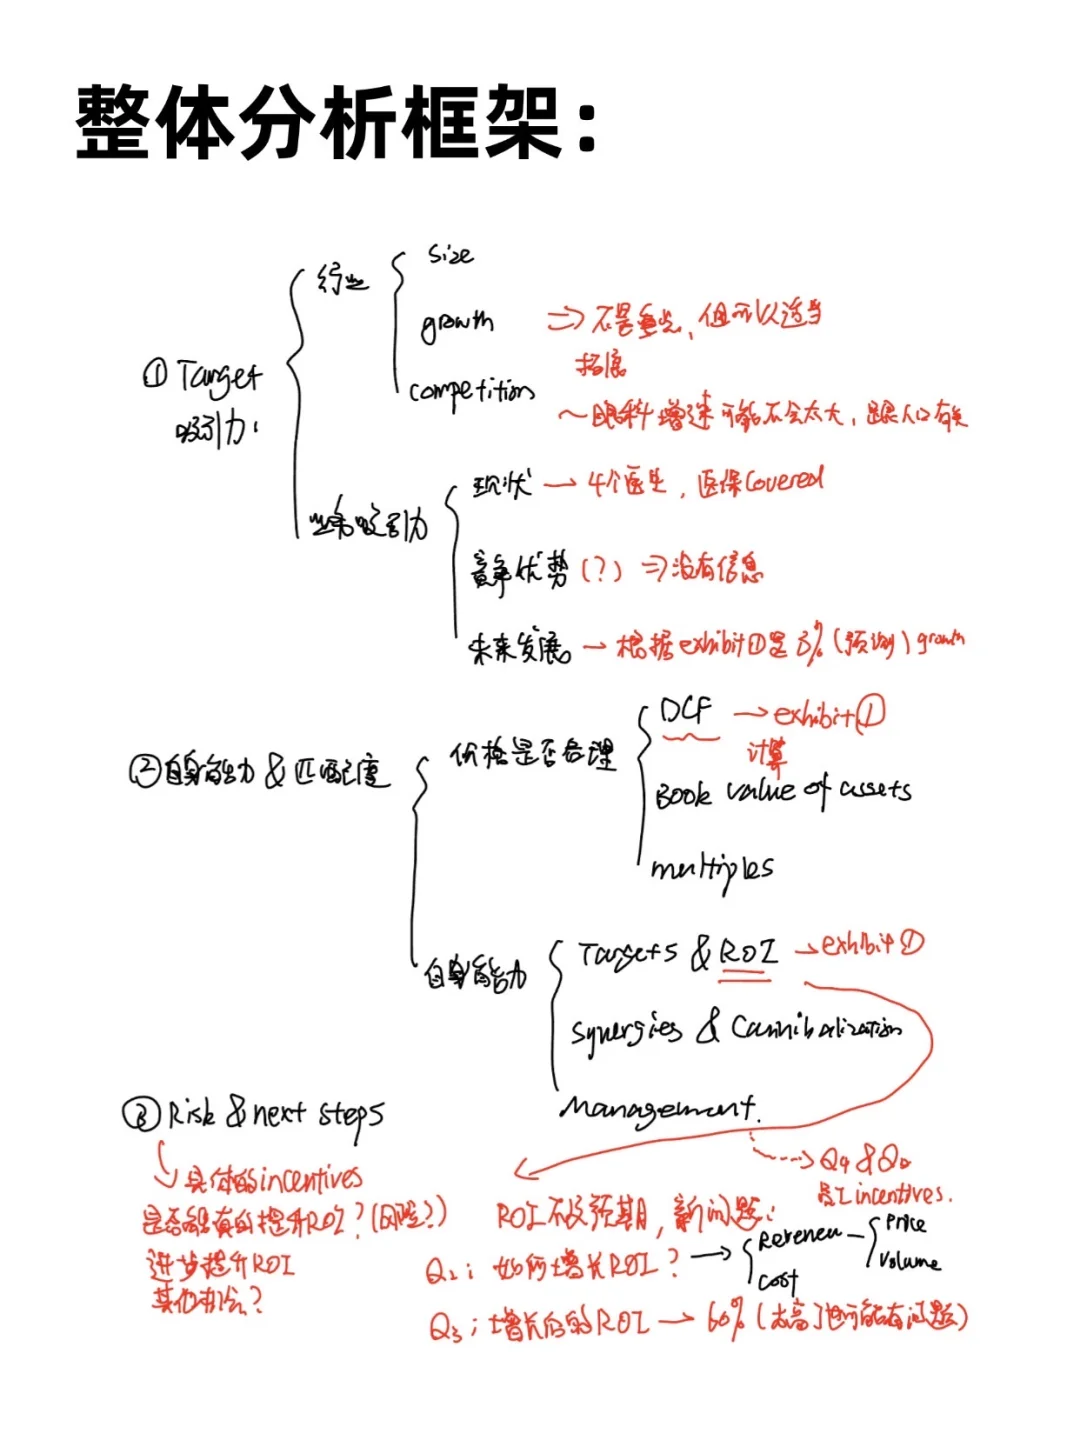 整体分析框架：
行业
size
growth
⇒ 不是重点，但可以适当
拓展
① Target
吸引力：
competition
~ 眼科增速可能不会太大，跟人口有关
现状 → 4个医生，医保Covered
业务吸引力
竞争优势（?）⇒ 没有信息
未来发展 → 根据exhibit①是3%（预测）growth
② 自身能力 & 匹配度
价格是否合理
DCF → exhibit①
计算
Book value of assets
multiples
自身能力
Targets & ROI → exhibit①
Synergies & Cannibalization
Management.
③ Risk & next steps
→ Q4 & Q5
员工incentives.
↳ 具体的incentives
是否能真的提升ROI？（风险？）
进步提升ROI
其他办法？
ROI不及预期，新问题：
Q2：如何增长ROI？ → Revenue
Price
Volume
Cost
Q3：增长后的ROI → 60%（太高了也可能有问题）